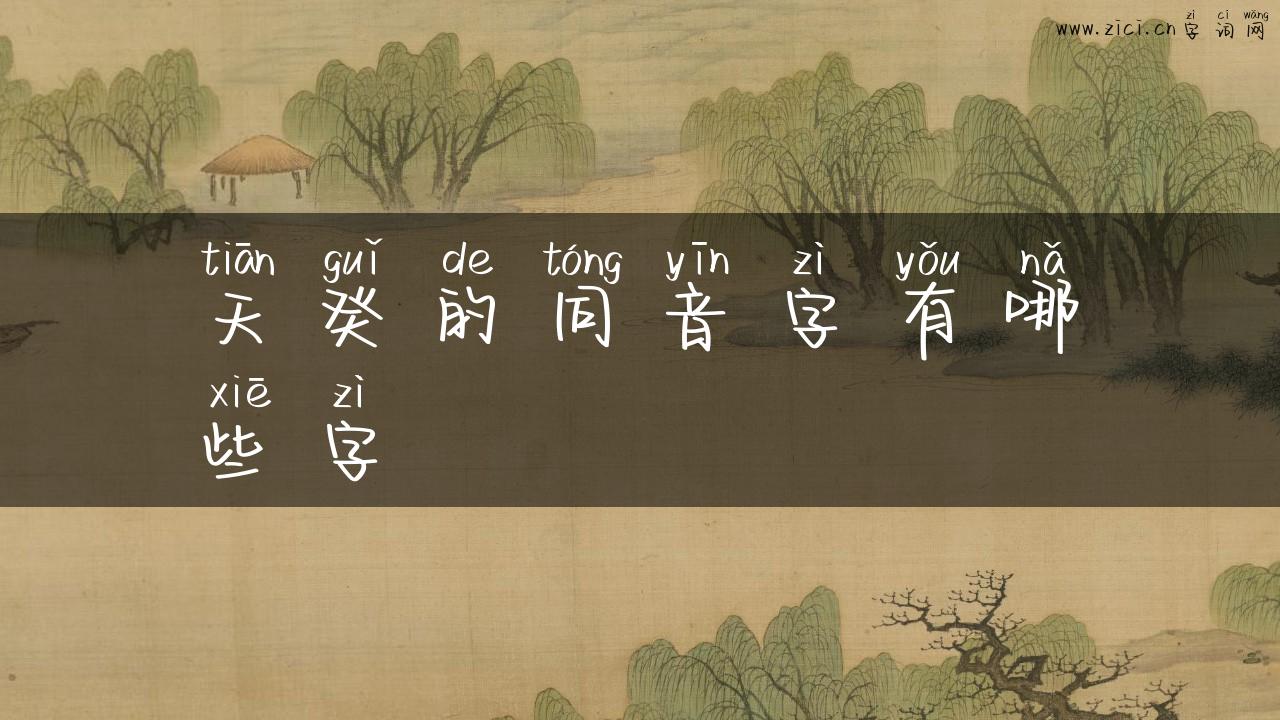 zì cí wǎng
www.zici.cn 字 词 网
tiān guǐ de tóng yīn zì yǒu nǎ
天 癸 的 同 音 字 有 哪
xiē zì
些 字